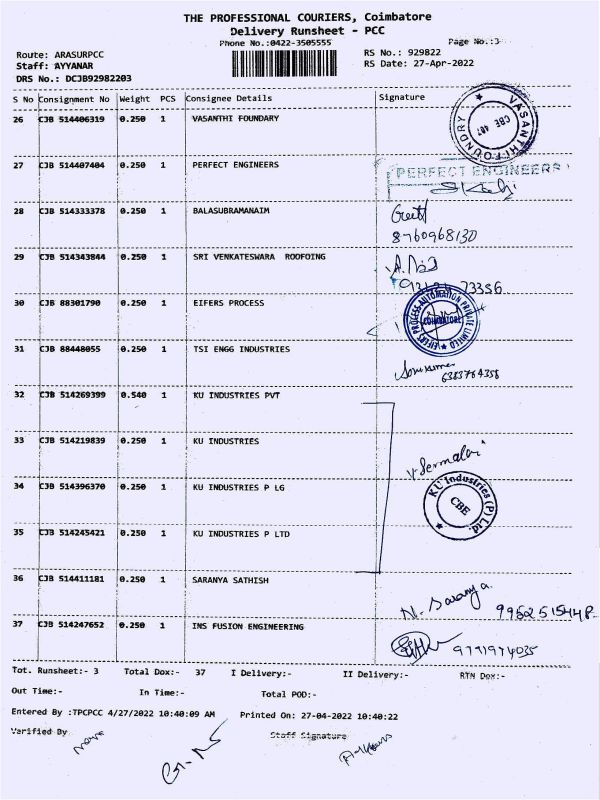 THE PROFESSIONAL COURIERS, Coimbatore
Delivery Runsheet - PCC
Phone No.:0422-3505555 Page No.:3
Route: ARASURPCC RS No.: 929822
Staff: AYYANAR RS Date: 27-Apr-2022
DRS No.: DCJB92982203
S No Consignment No Weight PCS Consignee Details Signature
26 CJB 514406319 0.250 1 VASANTHI FOUNDARY VASANTHI FOUNDRY CBE
27 CJB 514407404 0.250 1 PERFECT ENGINEERS PERFECT ENGINEERS
28 CJB 514333378 0.250 1 BALASUBRAMANAIM
8760968130
29 CJB 514343844 0.250 1 SRI VENKATESWARA ROOFOING
30 CJB 88301790 0.250 1 EIFERS PROCESS EIFERS PROCESS AUTOMATION PRIVATE LIMITED COIMBATORE
31 CJB 88448055 0.250 1 TSI ENGG INDUSTRIES
6383764358
32 CJB 514269399 0.540 1 KU INDUSTRIES PVT
33 CJB 514219839 0.250 1 KU INDUSTRIES
34 CJB 514396370 0.250 1 KU INDUSTRIES P LG KU Industries (P) Ltd. CBE
35 CJB 514245421 0.250 1 KU INDUSTRIES P LTD
36 CJB 514411181 0.250 1 SARANYA SATHISH N. Saranya.
9952515448
37 CJB 514247652 0.250 1 INS FUSION ENGINEERING 9791974035
Tot. Runsheet:- 3 Total Dox:- 37 I Delivery:- II Delivery:- RTN Dox:-
Out Time:- In Time:- Total POD:-
Entered By :TPCPCC 4/27/2022 10:40:09 AM Printed On: 27-04-2022 10:40:22
Varified By Staff Signature